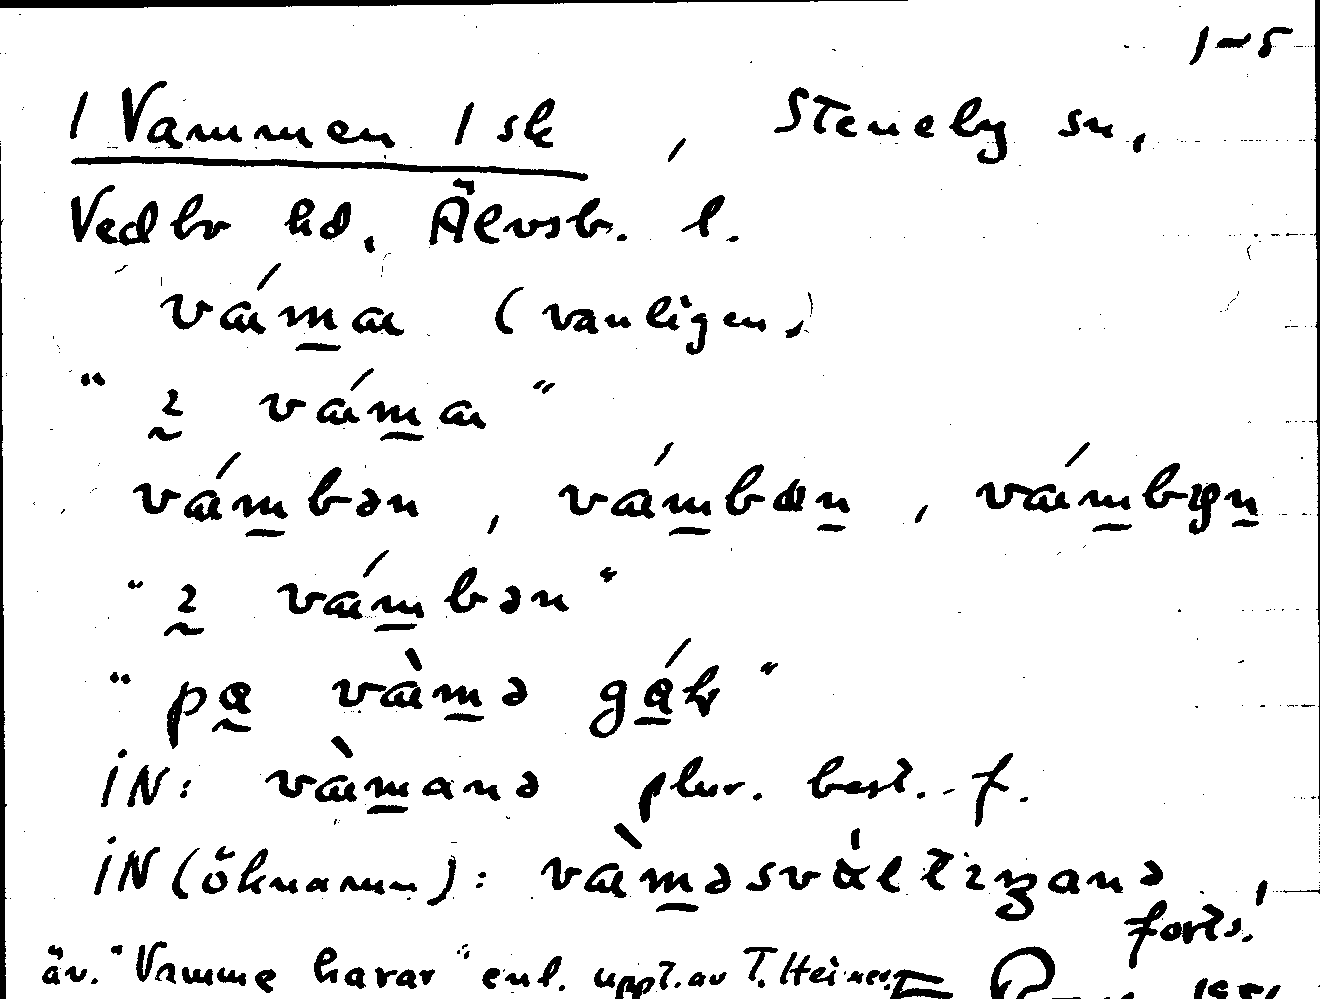 1-5
1 Vammen 1 sk, Steneby sn,
Vedbo hd, Älvsb. l.
vám̲a (vanligen)
"ɪ̰ vám̲a"
vám̲bən, vám̲ban̲, vám̲bɐn̲
"ɪ̰ vám̲bən"
"pa̰ vàm̲ə gá̲h"
IN: vàm̲anə plur. best. f.
IN (öknamn): vàm̲əsvàltɪŋanə,
forts.
äv. "Vamme harar" enl. uppt. av T. Heiner